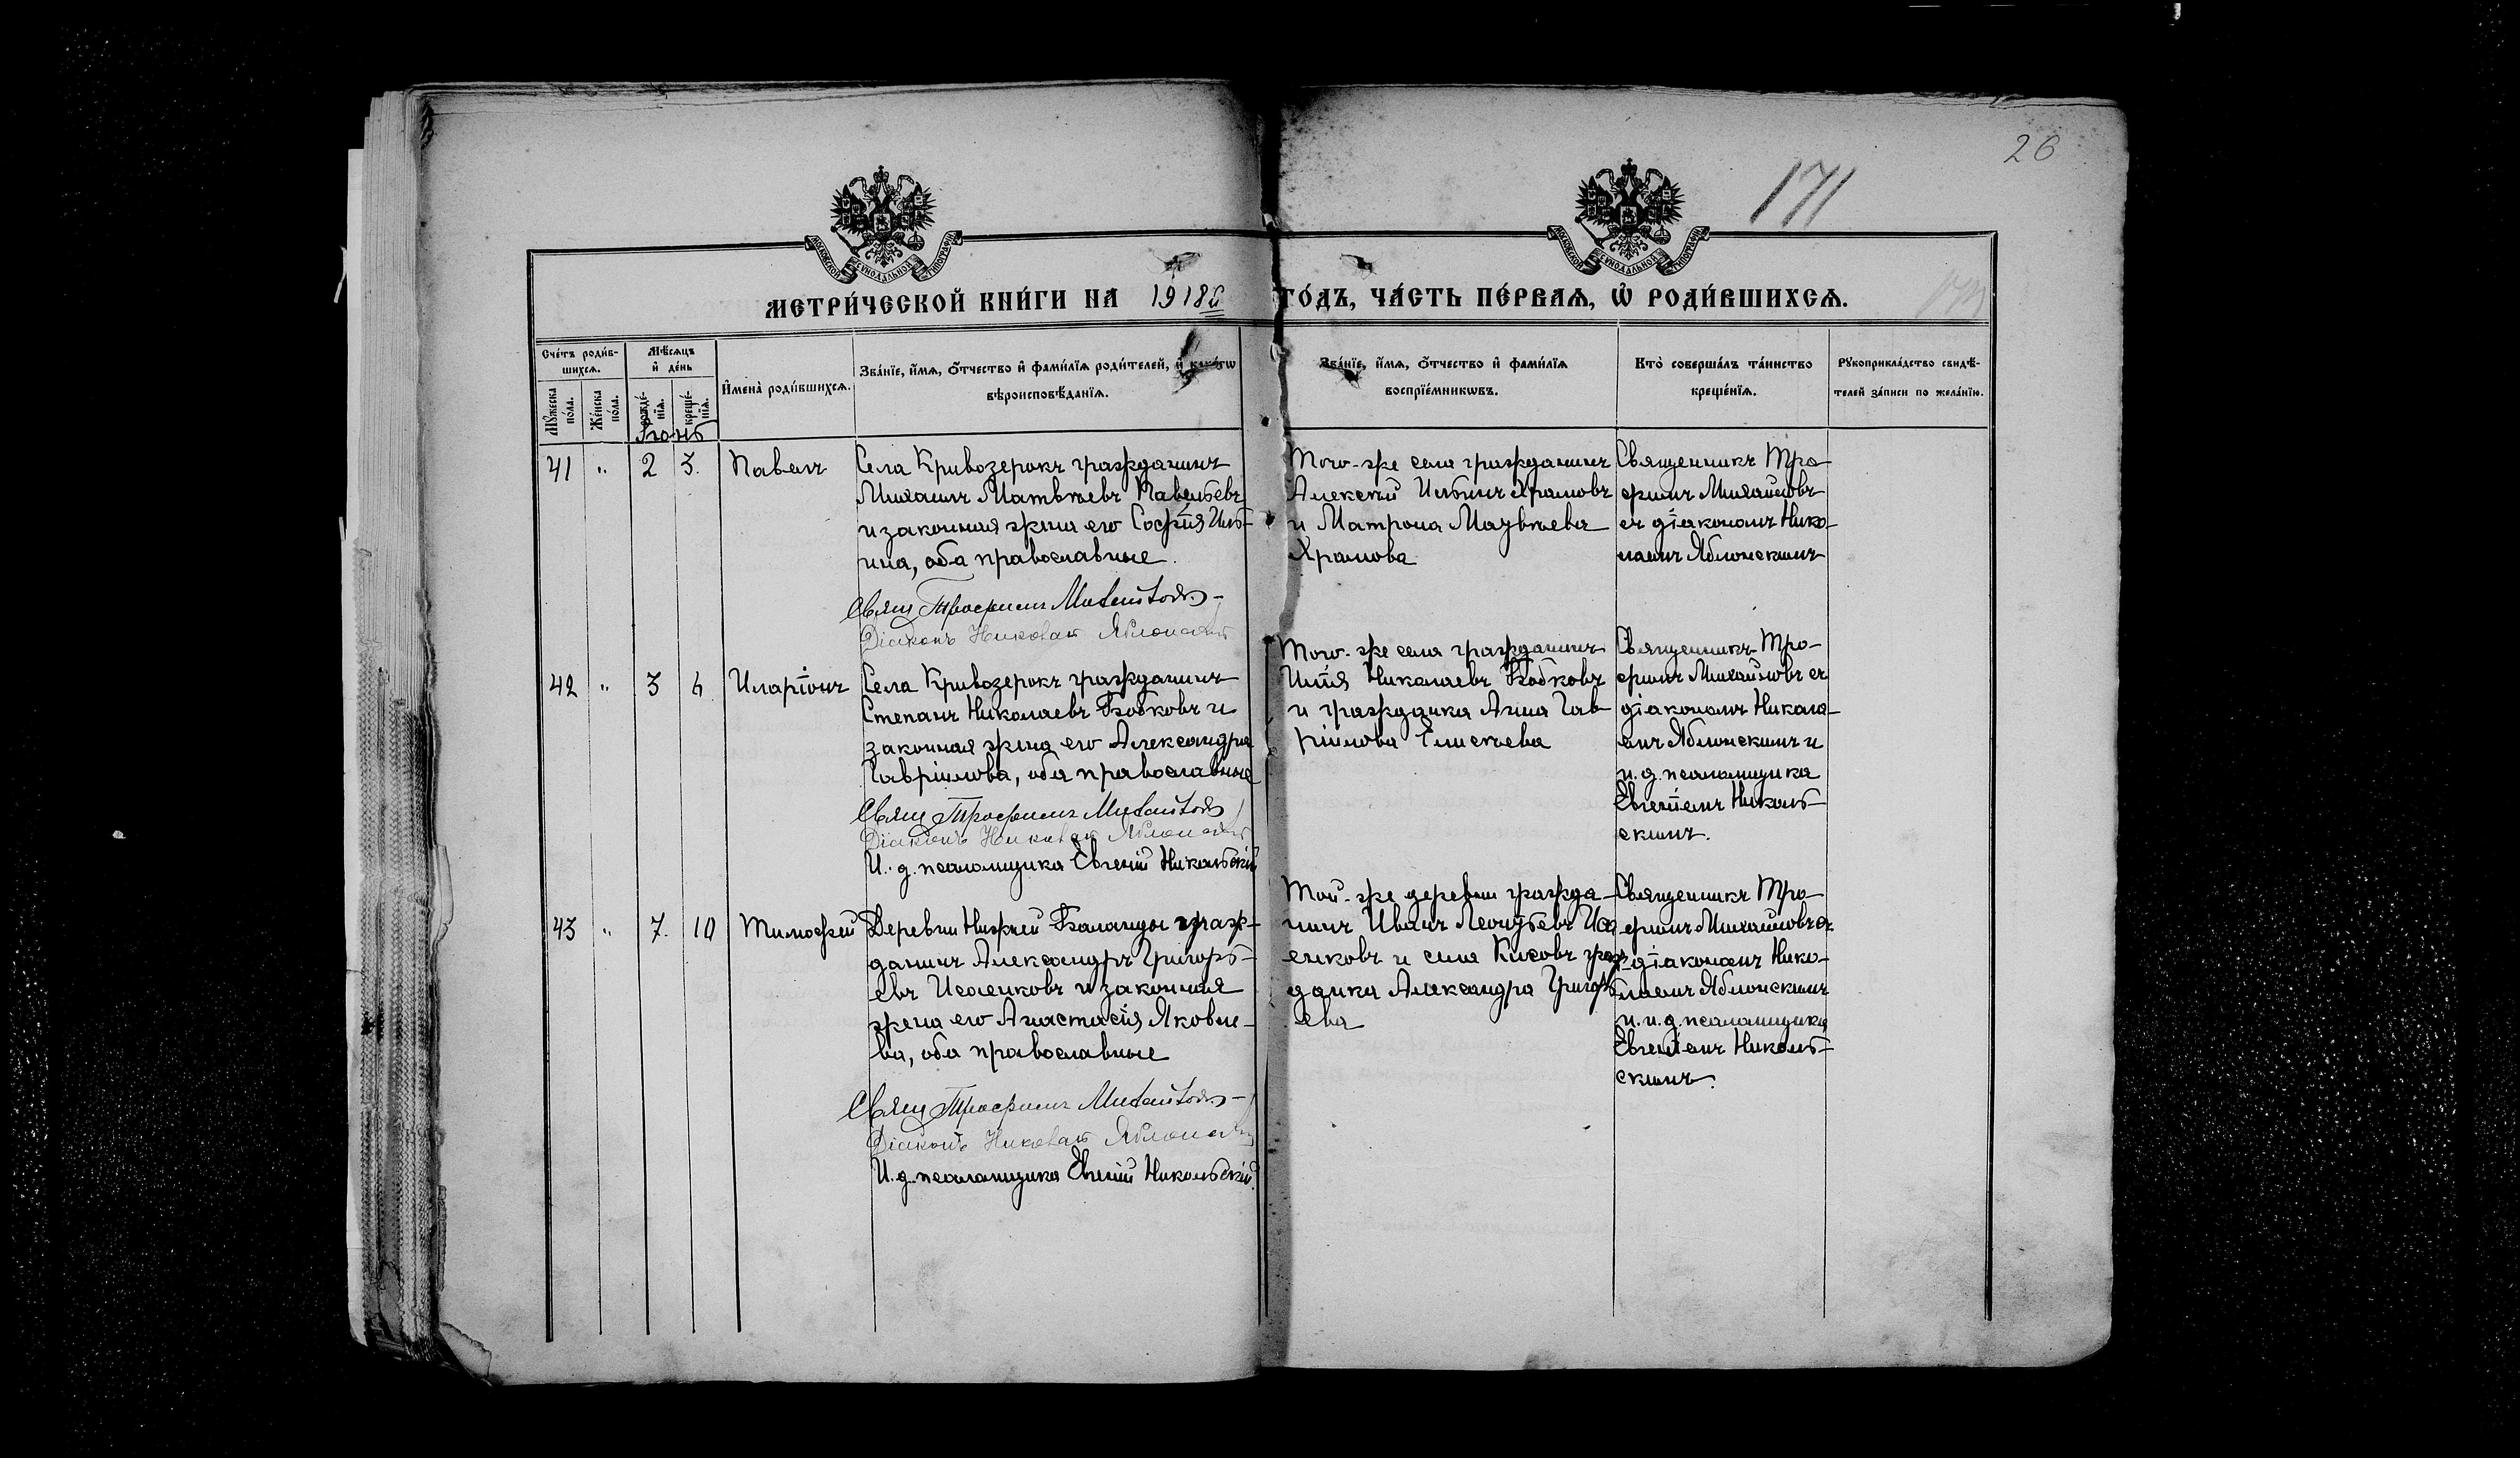 26
171
МОСКОВСКОЙ СѴНОДАЛЬНОЙ ТИПОГРАФІИ
МОСКОВСКОЙ СѴНОДАЛЬНОЙ ТИПОГРАФІИ
МЕТРИ́ЧЕСКОЙ КНИ́ГИ НА 1918 ГО́ДЪ, ЧА́СТЬ ПЕ́РВАѦ, Ѽ РОДИ́ВШИХСѦ.
Сче́тъ роди́в-
шихсѧ.
Мꙋ́жеска
по́ла.
Же́нска
по́ла.
Мѣ́сѧцъ
и҆ де́нь
рожде́-
нїѧ.
креще́-
нїѧ.
И҆мена̀ роди́вшихсѧ.
Зва́нїе, и҆́мѧ, ѻ҆́тчество и҆ фами́лїѧ роди́телей, и҆ како́гѡ
вѣроисповѣ́данїѧ.
Зва́нїе, и҆́мѧ, ѻ҆́тчество и҆ фами́лїѧ
воспрїе́мникѡвъ.
Кто̀ соверша́лъ та́инство
креще́нїѧ.
Рꙋкоприкла́дство свидѣ́-
телей за́писи по жела́нїю.
Іюнь
41 " 2 3. Павелъ
Села Кривозерокъ гражданинъ
Михаилъ Матвѣевъ Павельевъ
и законная жена его Софія Иль-
ина, оба православные.
Свящ Трофимъ Михайловъ
Діаконъ Николай Яблонскій
Того-же села гражданинъ
Алексѣй Ильинъ Храмовъ
и Матрона Матвѣева
Храмова
Священникъ Тро-
фимъ Михайловъ
съ діакономъ Нико-
лаемъ Яблонскимъ
42 " 3 4 Иларіонъ
Села Кривозерокъ гражданинъ
Степанъ Николаевъ Бобковъ и
законная жена его Александра
Гавріилова, оба православные
Свящ Трофимъ Михайловъ
Діаконъ Николай Яблонскій
И. д. псаломщика Евгеній Никольскій
Того-же села гражданинъ
Илія Николаевъ Бобковъ
и гражданка Анна Гав-
ріилова Елисѣева
Священникъ Тро-
фимъ Михайловъ съ
діакономъ Никола-
емъ Яблонскимъ и
и. д. псаломщика
Евгеніемъ Николь-
скимъ.
43 " 7. 10 Тимофей
Деревни Нижней Баланды граж-
данинъ Александръ Григорь-
евъ Исаенковъ и законная
жена его Анастасія Яковле-
ва, оба православные
Свящ Трофимъ Михайловъ
Діаконъ Николай Яблонскій
И. д. псаломщика Евгеній Никольскій.
Той-же деревни гражда-
нинъ Иванъ Леонтьевъ Иса
енковъ и села Кисовъ граж-
данка Александра Григорь
ева
Священникъ Тро-
фимъ Михайловъ съ
діакономъ Нико-
лаемъ Яблонскимъ
и и. д. псаломщика
Евгеніемъ Николь-
скимъ.